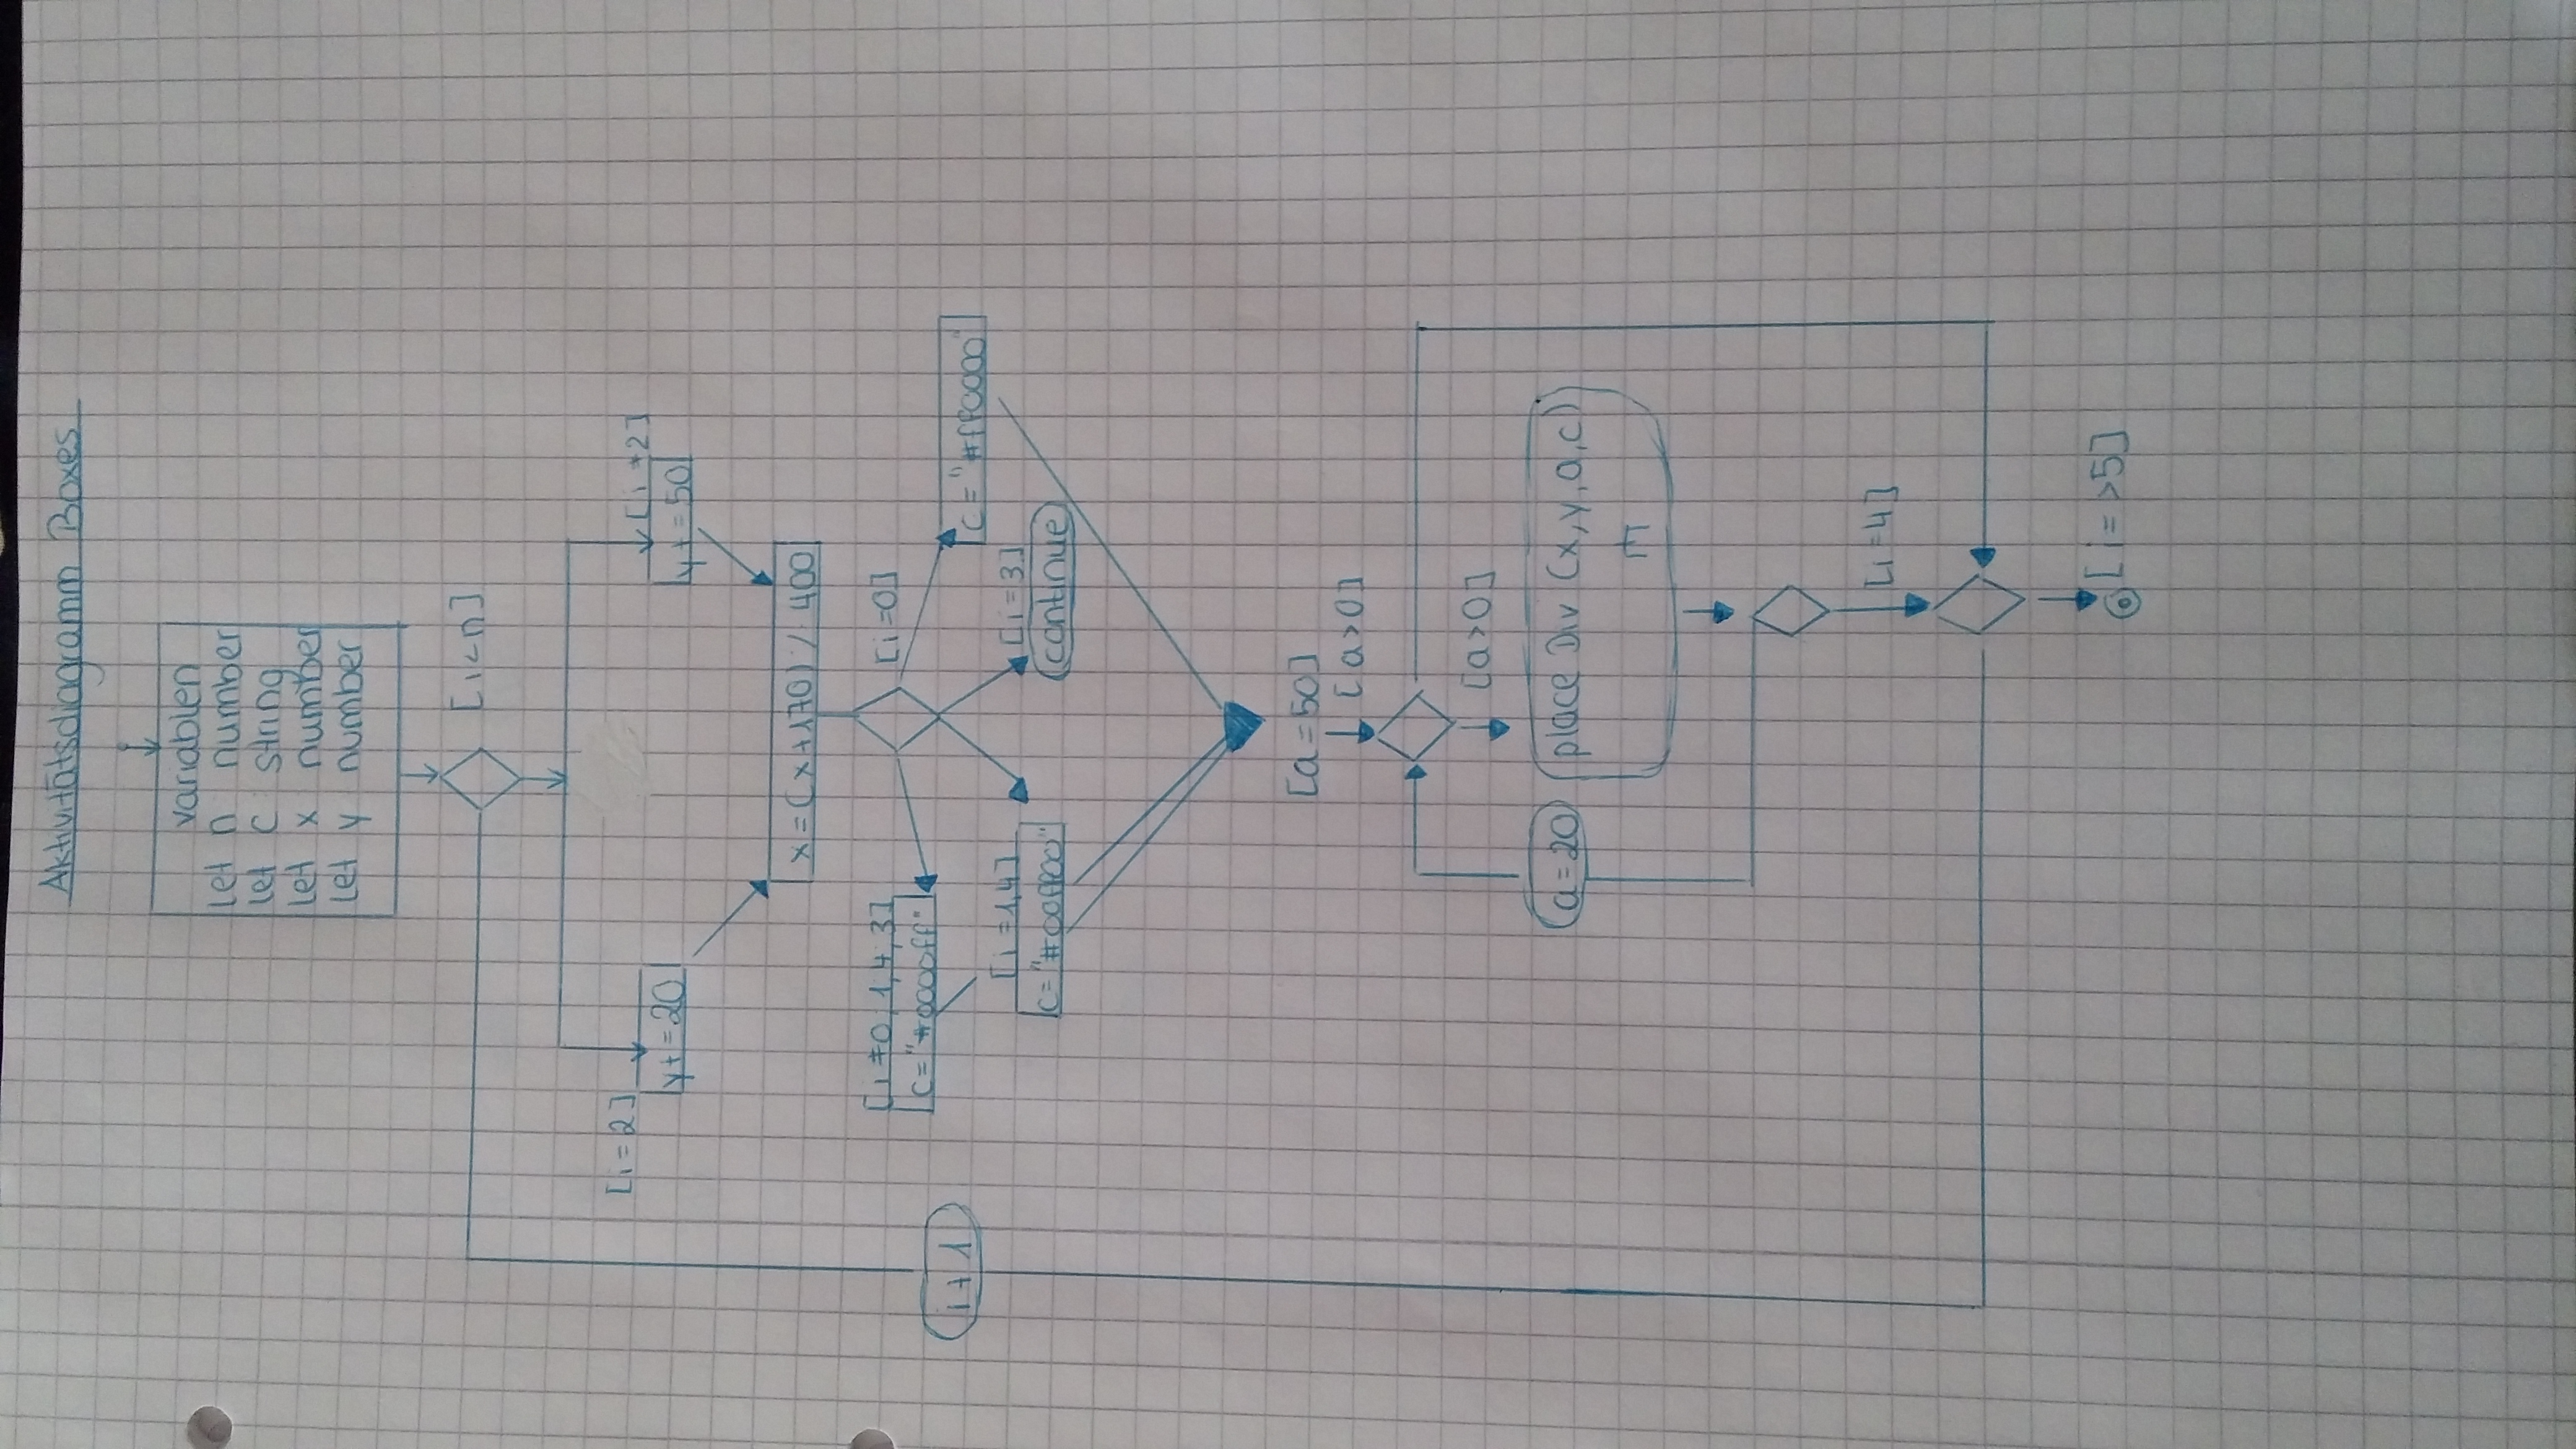 Aktivitätsdiagramm Boxes
variablen
let n: number
let c: string
let x number
let y number
[i<n]
[i=2]
y+=20
[i≠2]
y+=50
x=(x+170)%400
[i=0]
c="#ff0000"
[i≠0,1,4,3]
c="#0000ff"
[i=3]
continue
[i=1,4]
c="#00ff00"
i+1
[a=50]
[a>0]
[a>0]
place Div (x,y,a,c)
a=20
[i=4]
[i=>5]